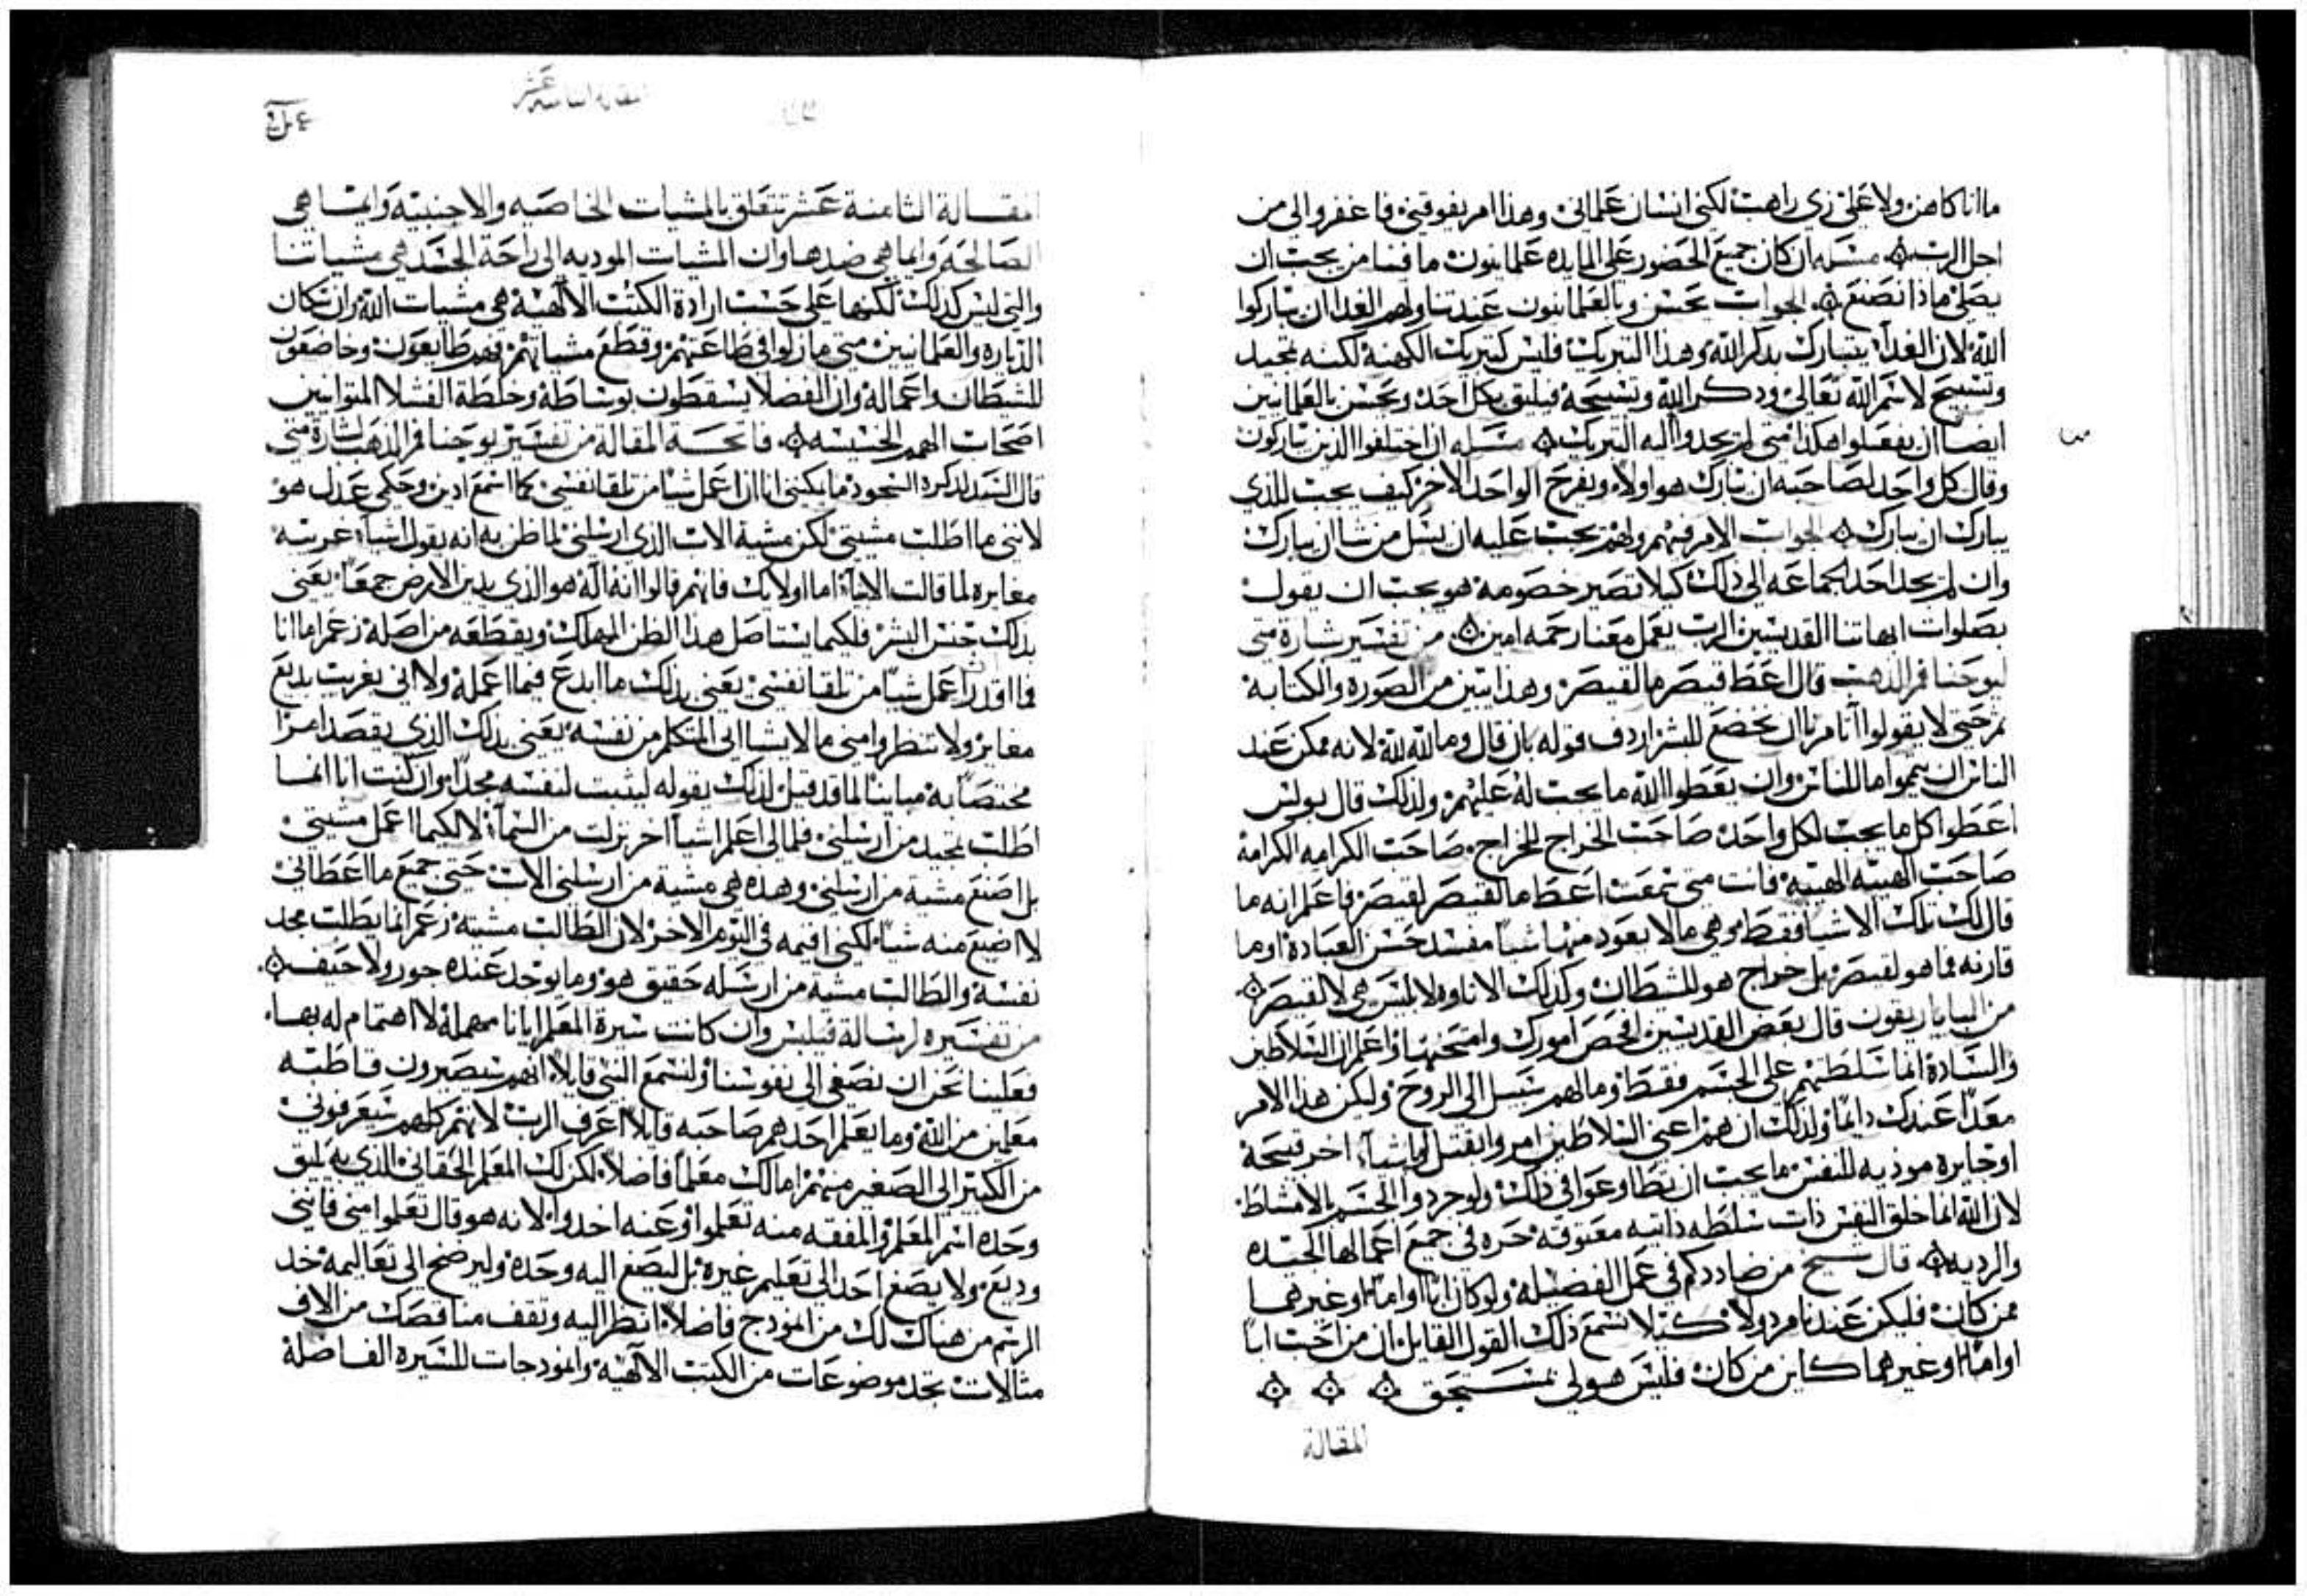 ماانا كاهن ولا على زي راهب لكني انسان علماني وهذا امر يفوقني فاغفروا لي من
اجل الرب مسله ان كان جميع الحضور على المايده علمانيون ما فينا من يجب ان
يصلي ماذا نصنع الجواب يحسن وبالعلمانيون عند تناولهم الغدا ان يباركوا
الله لان الغدا يتبارك بذكر الله وهذا التبريك فليس كتبريك الكهنة لكنه تمجيد
وتسبيح لاسم الله تعالى وذكر الله وتسبيحه فيليق بكل احد ويحسن بالعلمانيين
ايضا ان يفعلوا هكذا متى لم يجدوا اله التبريك مسله ان اختلفوا الذين يباركون
وقال كل واحد لصاحبه ان يبارك هو اولا ويفرح الواحد الاخر كيف يجب للذي
يبارك ان يبارك الجواب الامر فيهم ولهم يجب عليه ان يسل من شا ان يبارك
وان لم يجد احد الجماعه الى ذلك كيلا تصير خصومة هو يجب ان يقول
بصلوات ابهاتنا القديسين الرب يعمل معنا رحمه امين من تفسير بشارة متى
ليوحنا فم الذهب قال اعط قيصر ما لقيصر وهذا يتبين من الصورة والكتابة
ثم حتى لا يقولوا اتامرنا ان نخضع للبشر اردف قوله بان قال وما لله لله لانه ممكن عند
الناس ان يتمموا ما للناس وان يعطوا الله ما يجب له عليهم ولذلك قال بولس
اعطوا كل ما يجب لكل واحد صاحب الخراج الخراج صاحب الكرامه الكرامة
صاحب الهيبه الهيبه فانت متى سمعت اعط ما لقيصر لقيصر فاعلم انه ما
قال لك تلك الاشيا فقط وهي ما لا يعود منها شيا مفسد حسن العبادة او ما
قارنه فما هو لقيصر بل خراج هو للشيطان وكذلك الاناوه لابليس هي لا لقيصر
من البياناريقون قال بعض القديسين افحص امورك وامتحنها واعلم ان السلاطين
والسادة انما سلطتهم على الجسم فقط وما لهم سبيل الى الروح وليكن هذا الامر
معدا عندك دايما ولذلك ان هم اعني السلاطين امروا بقتل او باشيا اخر قبيحة
او جايرة موذيه للنفس ما يجب ان يطاوعوا في ذلك ولو جردوا الجسم بالامشاط
لان الله انما خلق النفس ذات سلطه ذاتيه معتوقه حره في جميع اعمالها الجيده
والرديه قال شيخ من ضاددكم في عمل الفضيلة ولو كان ابا او اما او غيرهما
ممن كان فليكن عندنا مردولا كيلا نسمع ذلك القول القايل ان من احب ابا
او اما او غيرهما كاين من كان فليس هو لي بمستحق
المقالة
المقاله الثامنه عشر
المقالة الثامنة عشر تتعلق بالمشيات الخاصيه والاجنبيه وايما هي
الصالحة وايما هي ضدها وان المشيات الموديه الى راحة الجسد هي مشياتنا
والتي ليس كذلك لكنها على حسب ارادة الكتب الالهية هي مشيات الله وان سكان
الديارة والعلمانيين متى مازلوا في طاعتهم وقطع مشياتهم فهم طايعون وخاضعون
للشيطان واعماله وان الفضلا يسقطون بوساطة وخلطة الفشلا المتوانيين
اصحاب الهمم الخسيسه فاتحة المقالة من تفسير يوحنا فم الذهب لبشارة متى
قال السيد لذكره السجود ما يمكنني انا ان اعمل شيا من تلقا نفسي كما اسمع ادين وحكمي عدل هو
لانني ما اطلب مشيتي لكن مشية الاب الذي ارسلني لما ظن به انه يقول اشيا غريبه
مغايرة لما قالت الانبيا اما اولايك فانهم قالوا انه اله هو الذي يدين الارض جمعا يعني
بذلك جنس البشر فلكيما يستاصل هذا الظن المهلك ويقطعه من اصله زعم اما انا
فما اقدر اعمل شيا من تلقا نفسي يعني بذلك ما ابدع فيما اعمله ولا اتي بغريب بديع
مغاير ولا تنظروا مني ما لا يشا ابي المتكلم من نفسه يعني بذلك الذي يقصد امرا
مختصا به مباينا لما قد قيل لذلك يقوله ليثبت لنفسه مجدا وان كنت انا انما
اطلب تمجيد من ارسلني فلما لي اعلم اشيا اخر نزلت من السما لا لكيما اعمل مشيتي
بل اصنع مشية من ارسلني وهذه هي مشية من ارسلني الاب حتى جميع ما اعطاني
لا اضيع منه شيا لكني اقيمه في اليوم الاخر لان الطالب مشيته زعم انما يطلب مجد
نفسه والطالب مشية من ارسله حقيق هو وما يوجد عنده جور ولا حيف
من تفسيره لرسالة فيلبس وان كانت سيرة المعلم ايانا مهملة لا اهتمام له بها
فعلينا نحن ان نصغي الى نفوسنا ولنسمع النبي قايلا انهم سيصيرون قاطبه
معلمين من الله وما يعلم احدهم صاحبه قايلا اعرف الرب لانهم كلهم سيعرفوني
من الكبير الى الصغير منهم اما لك معلما فاضلا لكن لك المعلم الحقاني الذي به يليق
وحده اسم المعلم والمفقه منه تعلموا وعنه اخذوا لانه هو قال تعلموا مني فانني
وديع ولا يصغ احد الى تعليم غيره بل ليصغ اليه وحده وليرضخ الى تعاليمه خد
الرسم من هناك لك من انموذج فاضلا انظر اليه وتقف مناقصك من الاف
مثالات تجد موضوعات من الكتب الالهية وانموذجات للسيرة الفاضلة